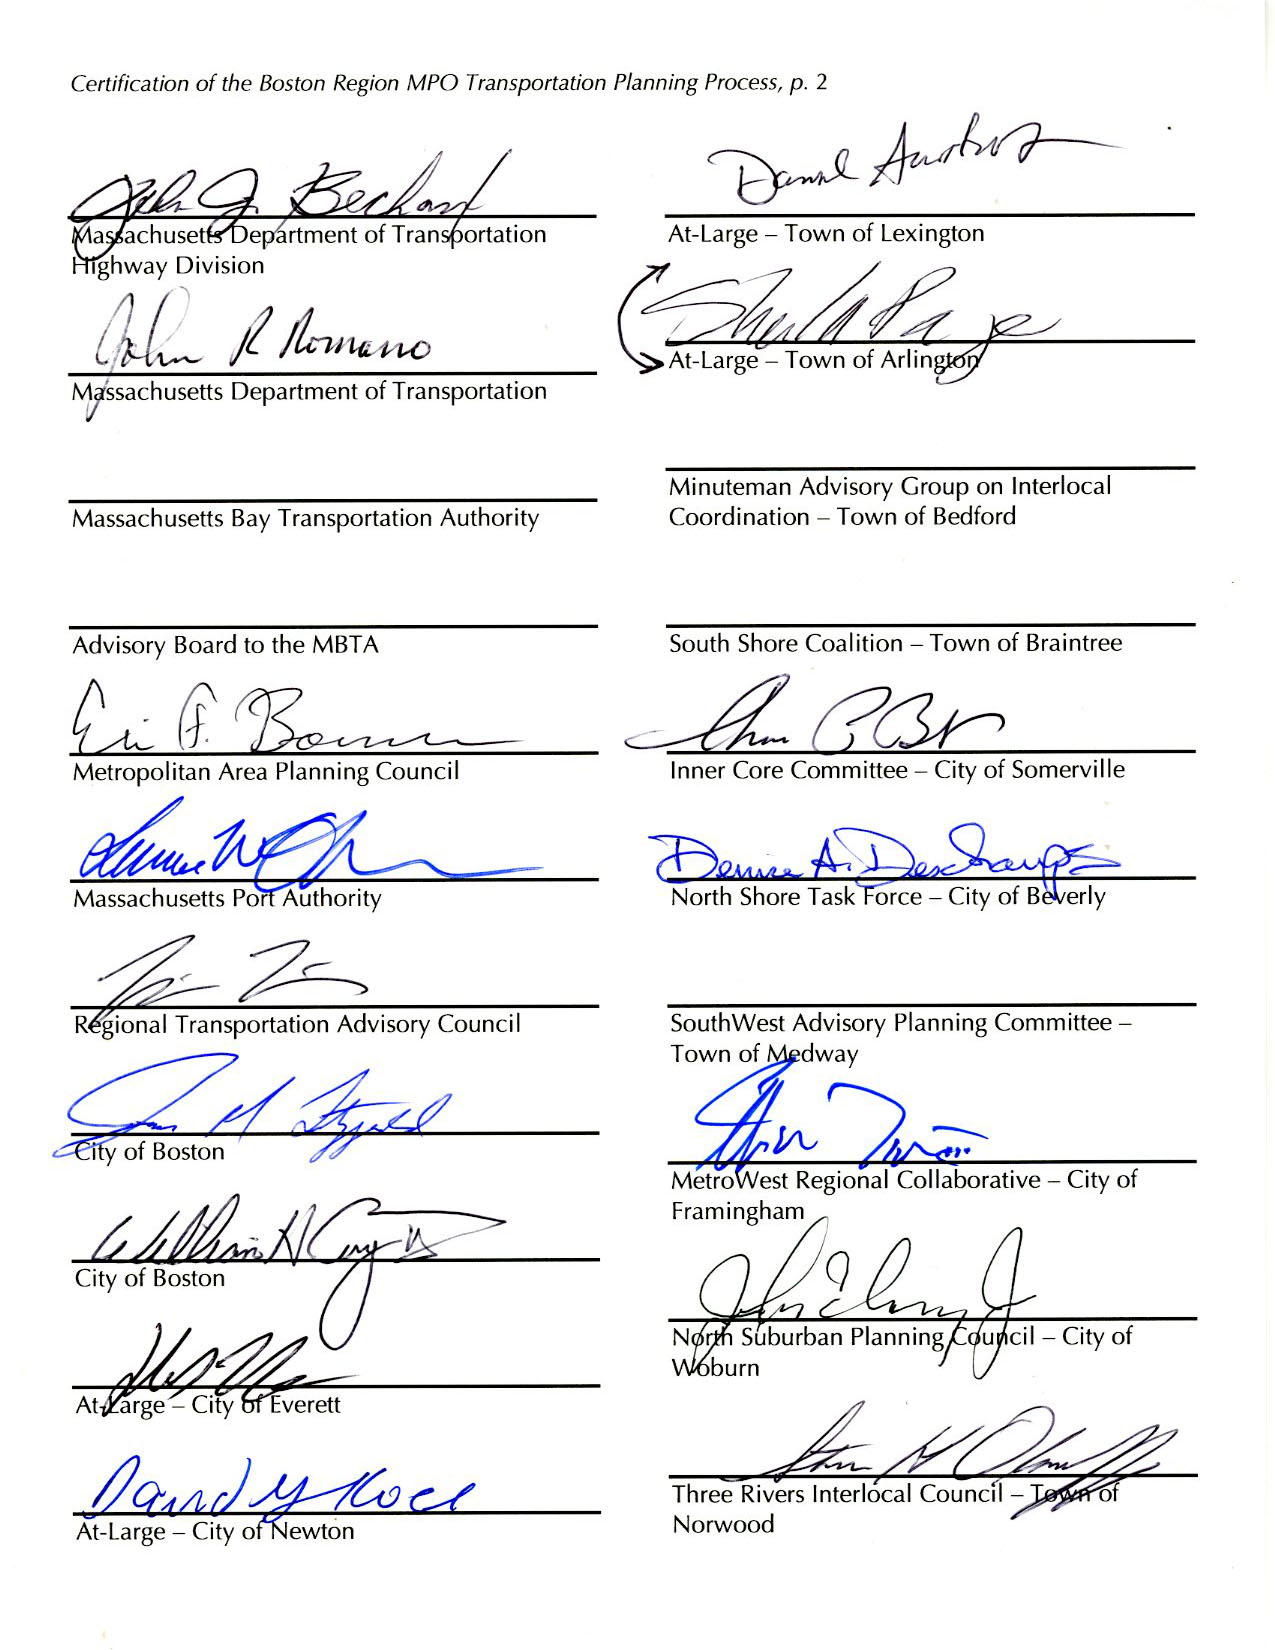 Certification of the Boston Region MPO Transportation Planning Process, p. 2
John J. Bechard
Massachusetts Department of Transportation
Highway Division
John R Romano
Massachusetts Department of Transportation
Massachusetts Bay Transportation Authority
Advisory Board to the MBTA
Eric F. Bourassa
Metropolitan Area Planning Council
Massachusetts Port Authority
Regional Transportation Advisory Council
City of Boston
William
City of Boston
At-Large – City of Everett
David
At-Large – City of Newton
Daniel
At-Large – Town of Lexington
Sheila Page
At-Large – Town of Arlington
Minuteman Advisory Group on Interlocal
Coordination – Town of Bedford
South Shore Coalition – Town of Braintree
Inner Core Committee – City of Somerville
Denise A. Deschamps
North Shore Task Force – City of Beverly
SouthWest Advisory Planning Committee –
Town of Medway
MetroWest Regional Collaborative – City of
Framingham
North Suburban Planning Council – City of
Woburn
Three Rivers Interlocal Council – Town of
Norwood